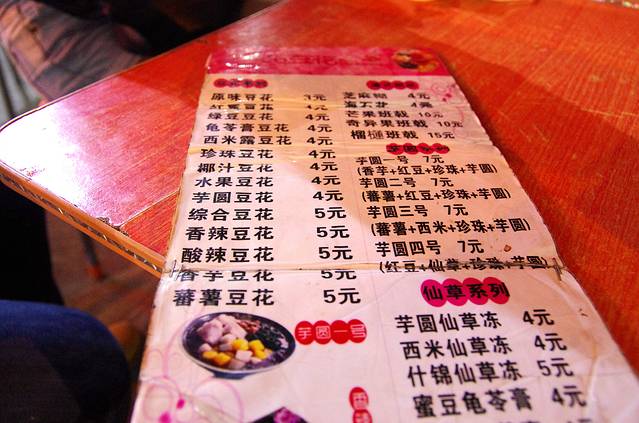 豆花
原味豆花 3元
红薯豆花 4元
绿豆豆花 4元
龟苓膏豆花 4元
西米露豆花 4元
珍珠豆花 4元
椰汁豆花 4元
水果豆花 4元
芋圆豆花 4元
综合豆花 5元
香辣豆花 5元
酸辣豆花 5元
香芋豆花 5元
蕃薯豆花 5元
芋圆一号
芝麻糊 4元
4元
芒果班戟 10元
奇异果班戟 10元
榴梿班戟 15元
芋圆系列
芋圆一号 7元
(香芋+红豆+珍珠+芋圆)
芋圆二号 7元
(蕃薯+红豆+珍珠+芋圆)
芋圆三号 7元
(蕃薯+西米+珍珠+芋圆)
芋圆四号 7元
(红豆+仙草+珍珠+芋圆)
仙草系列
芋圆仙草冻 4元
西米仙草冻 4元
什锦仙草冻 5元
蜜豆龟苓膏 4元